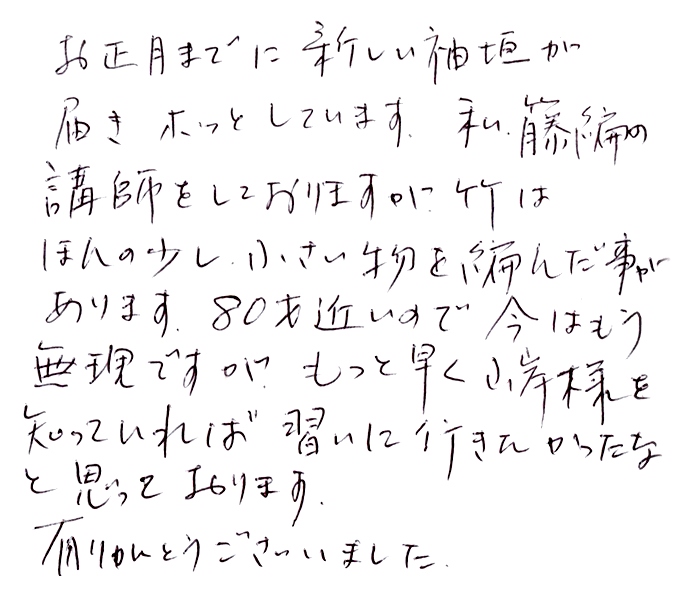 お正月までに新しい袖垣が
届きホッとしています。私、籐編の
講師をしておりますが竹は
ほんの少し、小さい物を編んだ事が
あります。80才近いので今はもう
無理ですが、もっと早く小岸様を
知っていれば習いに行きたかったな
と思っております。
有りがとうございました。